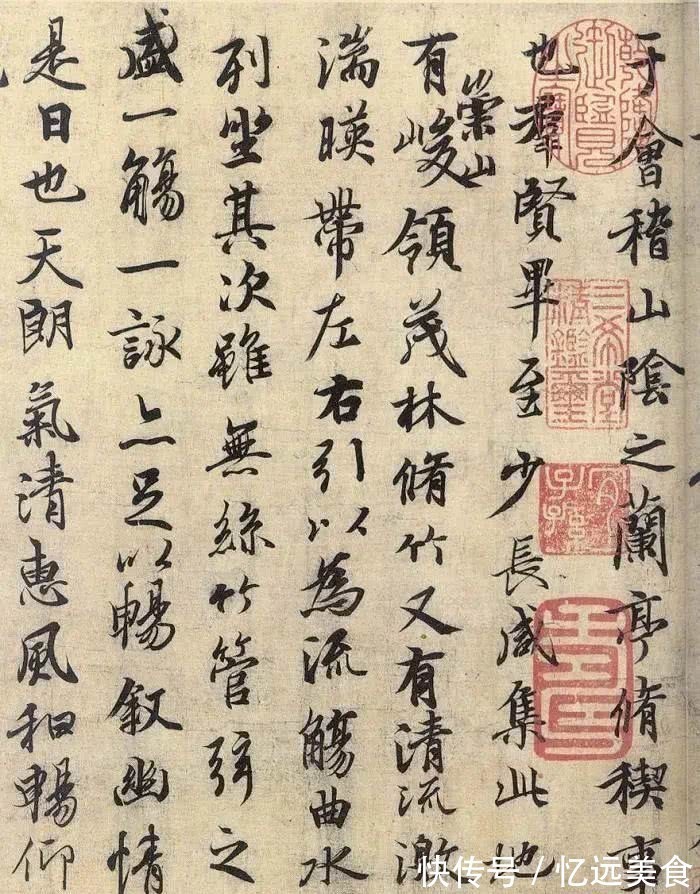 于會稽山陰之蘭亭脩稧事
也羣賢畢至少長咸集此地
有崇山峻領茂林脩竹又有清流激
湍暎帶左右引以為流觴曲水
列坐其次雖無絲竹管弦之
盛一觴一詠亦足以暢敘幽情
是日也天朗氣清惠風和暢仰
三希堂精鑑璽
快传号／忆远美食